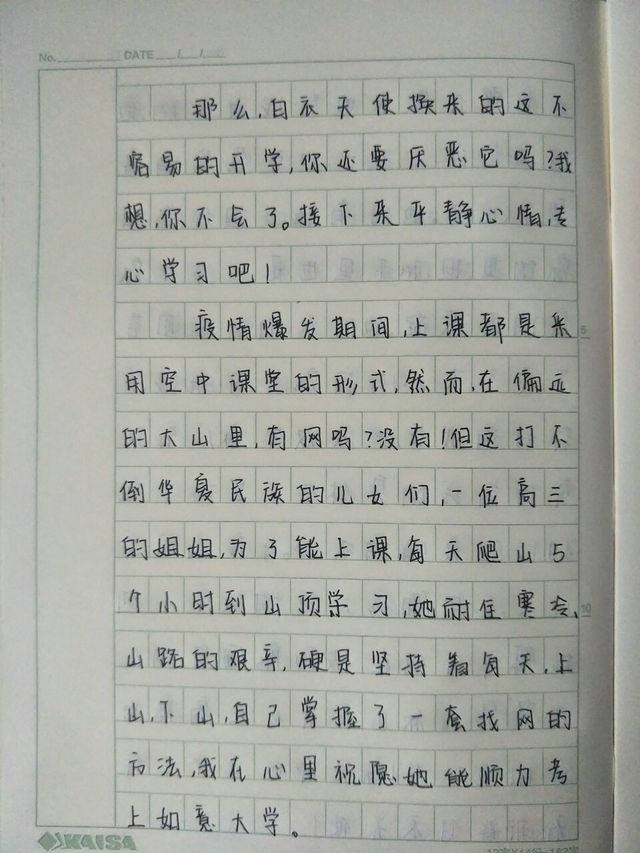 No.________ DATE __/__/__
那么,白衣天使换来的这不
容易的开学,你还要厌恶它吗?我
想,你不会了。接下来平静心情,专
心学习吧!
疫情爆发期间,上课都是采
用空中课堂的形式,然而,在偏远
的大山里,有网吗?没有!但这打不
倒华夏民族的儿女们,一位高三
的姐姐,为了能上课,每天爬山5
个小时到山顶学习,她耐住寒冷、
山路的艰辛,硬是坚持着每天,上
山,下山,自己掌握了一套找网的
方法,我在心里祝愿她能顺力考
上如意大学。
5
10
KAISA